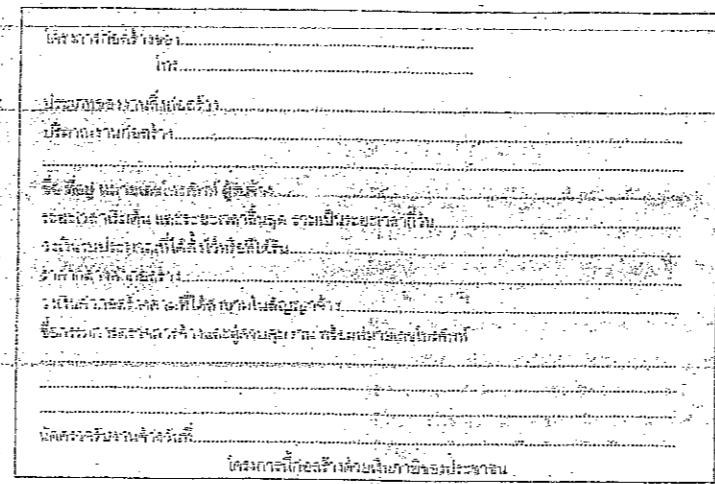 โครงการก่อสร้างของ........................................
โทร........................................
ประเภทของงานสิ่งก่อสร้าง........................................
ปริมาณงานก่อสร้าง........................................
........................................
ชื่อ ที่อยู่ หมายเลขโทรศัพท์ ผู้รับจ้าง........................................
ระยะเวลาเริ่มต้น และระยะเวลาสิ้นสุด รวมเป็นระยะเวลากี่วัน........................................
วงเงินงบประมาณที่ได้ตั้งไว้หรือที่ได้รับ........................................
ราคากลางค่าก่อสร้าง........................................
วงเงินค่าก่อสร้างตามที่ได้ลงนามในสัญญาจ้าง........................................
ชื่อกรรมการตรวจการจ้างและผู้ควบคุมงาน พร้อมหมายเลขโทรศัพท์
........................................
........................................
........................................
นัดตรวจรับงานจ้างวันที่........................................
โครงการนี้ก่อสร้างด้วยเงินภาษีของประชาชน